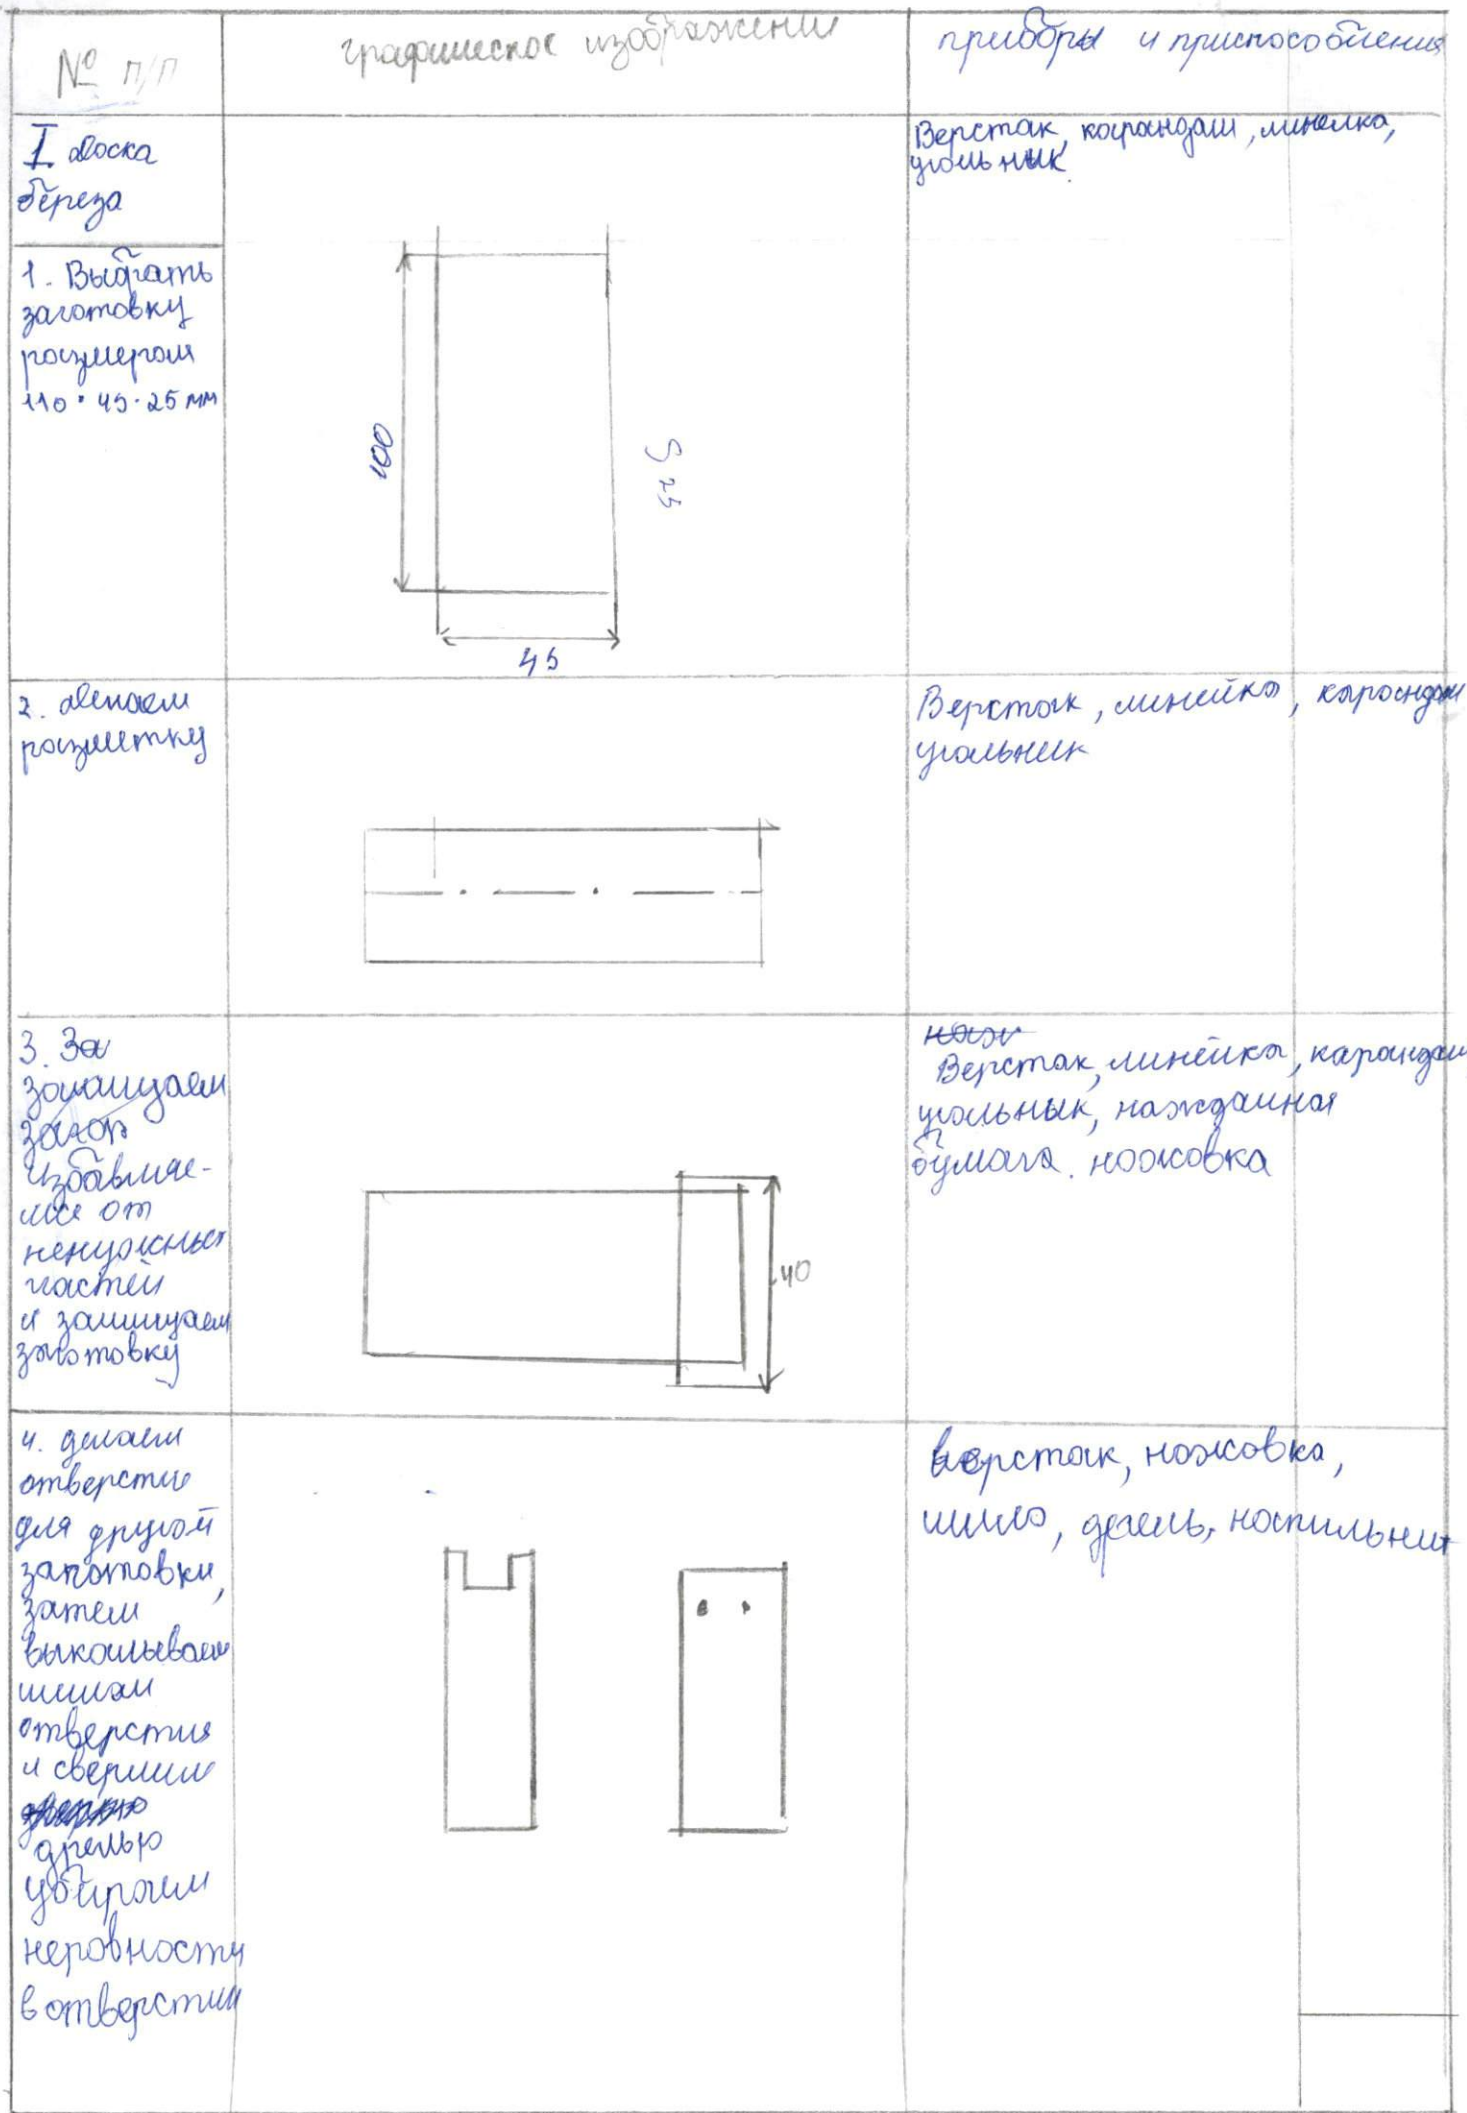 № п/п
графическое изображение
приборы и приспособления
I доска
береза
Верстак, карандаш, линелка,
угольник.
1. Выбрать
заготовку
размером
110 · 45 · 25 мм
100
S 25
45
2. делаем
разметку
Верстак, линейка, карандаш
угольник
3. За
зачищаем
загот
избавляе-
мся от
ненужных
частей
и зачищаем
заготовку
нож
Верстак, линейка, карандаш
угольнык, наждачная
бумага. ножовка
40
4. делаем
отверстие
для другой
заготовки,
затем
выкалываем
шилом
отверстия
и сверлим
дрелью
убираем
неровности
в отверстии
верстак, ножовка,
шило, дрель, напильник